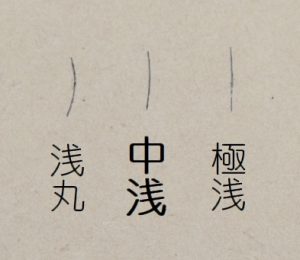 極浅
中浅
浅丸